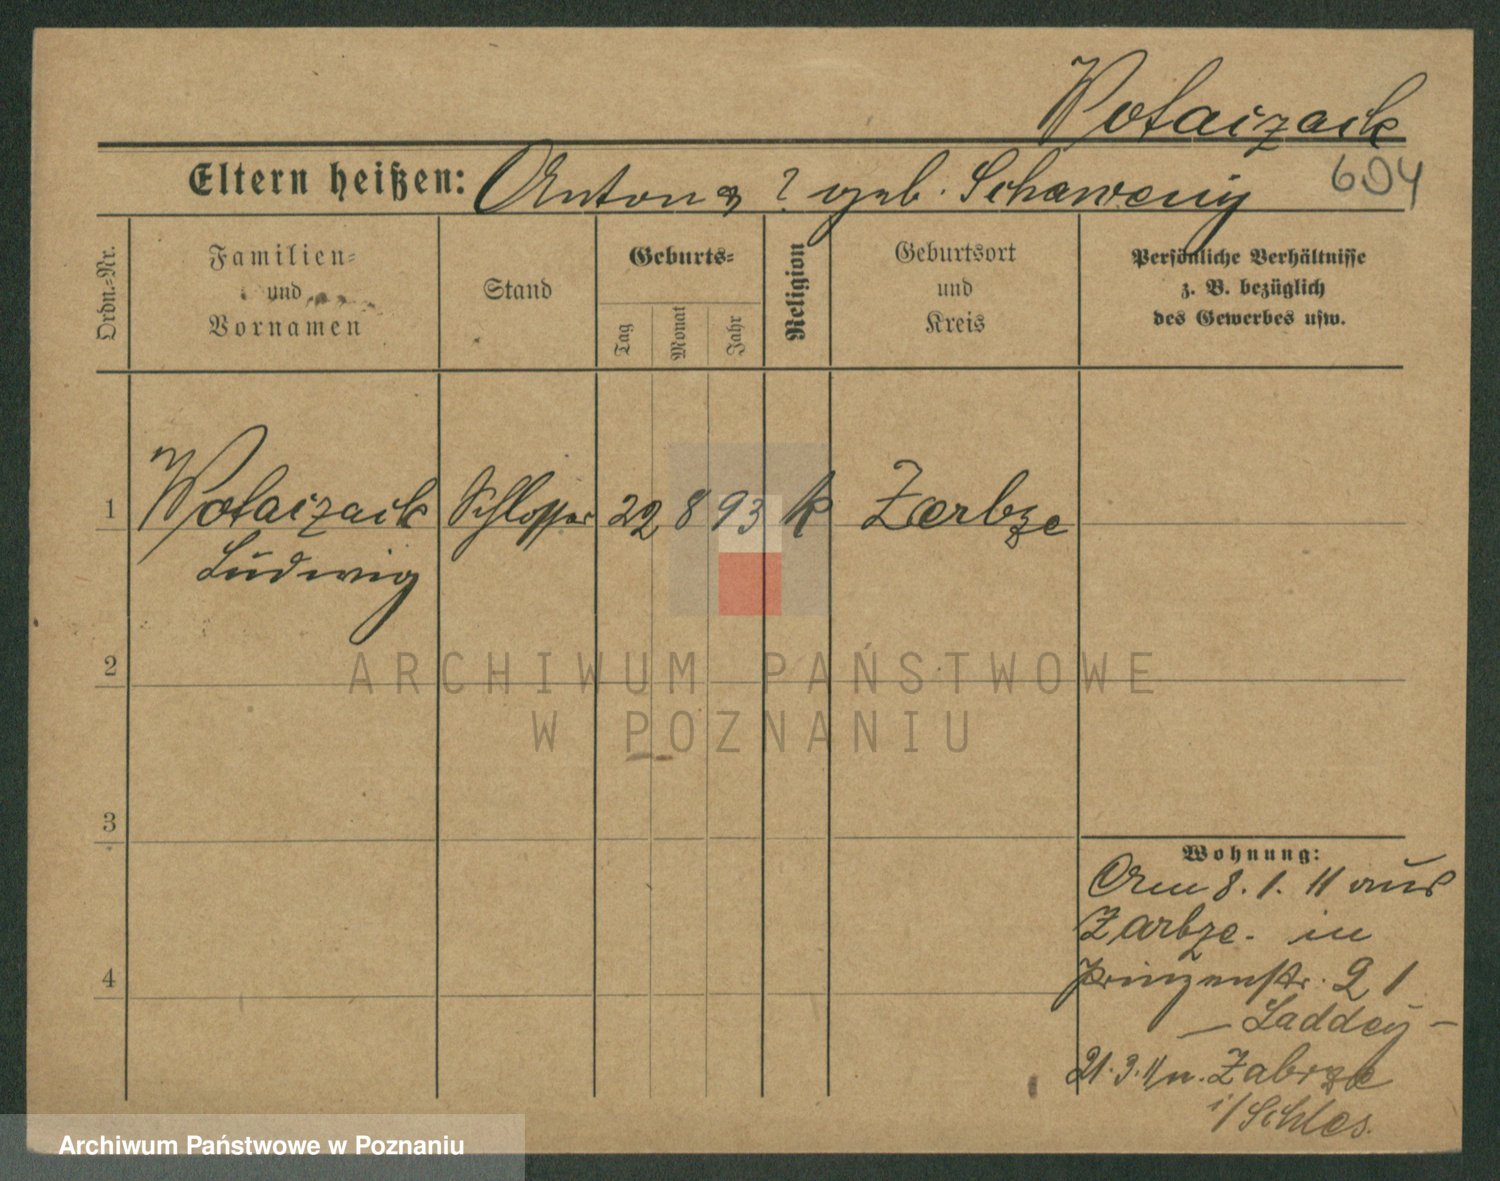 Wolaizack
Eltern heißen: Anton & ? geb. Schaweny
694
Ordn.-Nr.
Familien-
und
Vornamen
Stand
Geburts-
Tag
Monat
Jahr
Religion
Geburtsort
und
Kreis
Persönliche Verhältnisse
z. B. bezüglich
des Gewerbes usw.
1 Wolaizack Schlosser 22 8 93 k Zarbze
Ludwig
2
3
4
Wohnung:
Am 8. 1. 11 aus
Zarbze. in
Prinzenstr. 21
— Laddey —
21. 3. 11 n. Zabrze
i/Schles.
ARCHIWUM PAŃSTWOWE
W POZNANIU
Archiwum Państwowe w Poznaniu